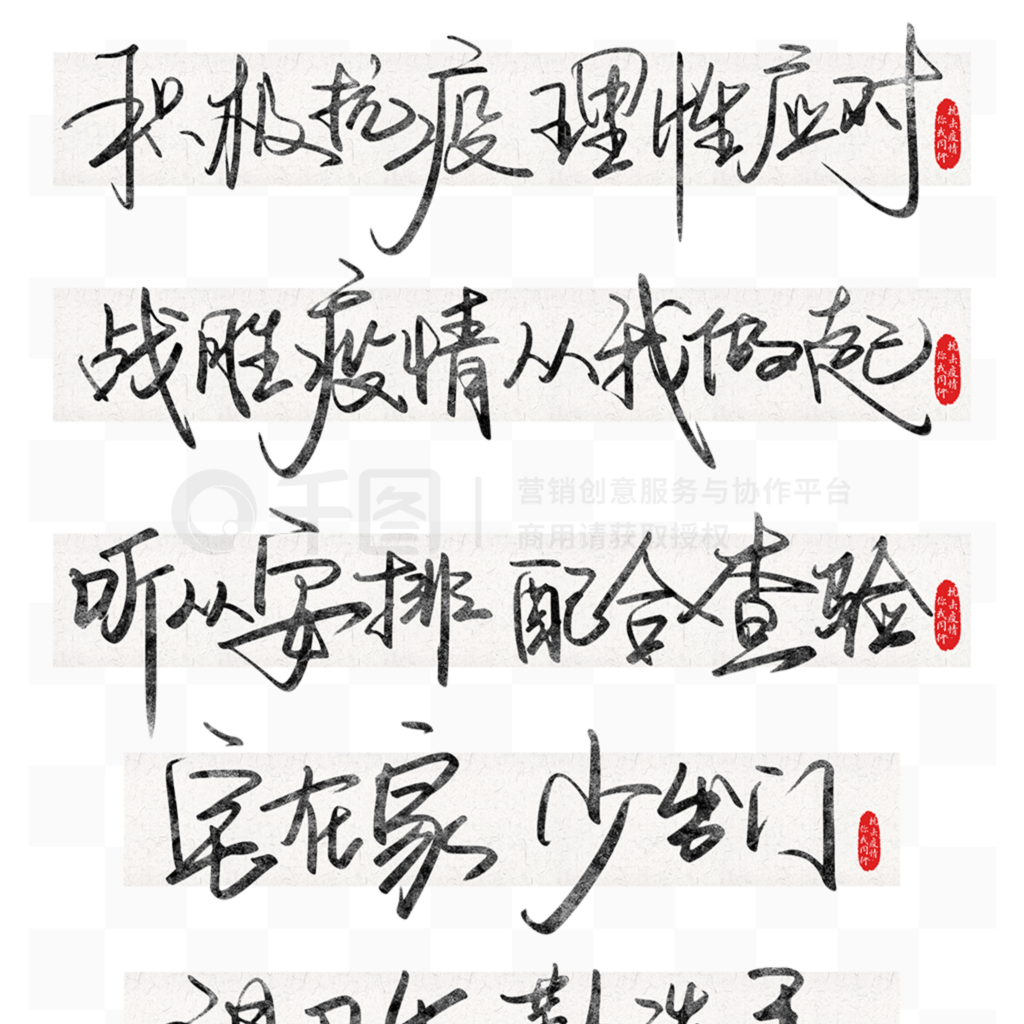 积极抗疫 理性应对
抗击疫情
你我同行
战胜疫情从我做起
抗击疫情
你我同行
千图
营销创意服务与协作平台
商用请获取授权
听从安排 配合查验
抗击疫情
你我同行
宅在家 少出门
抗击疫情
你我同行
勤洗手